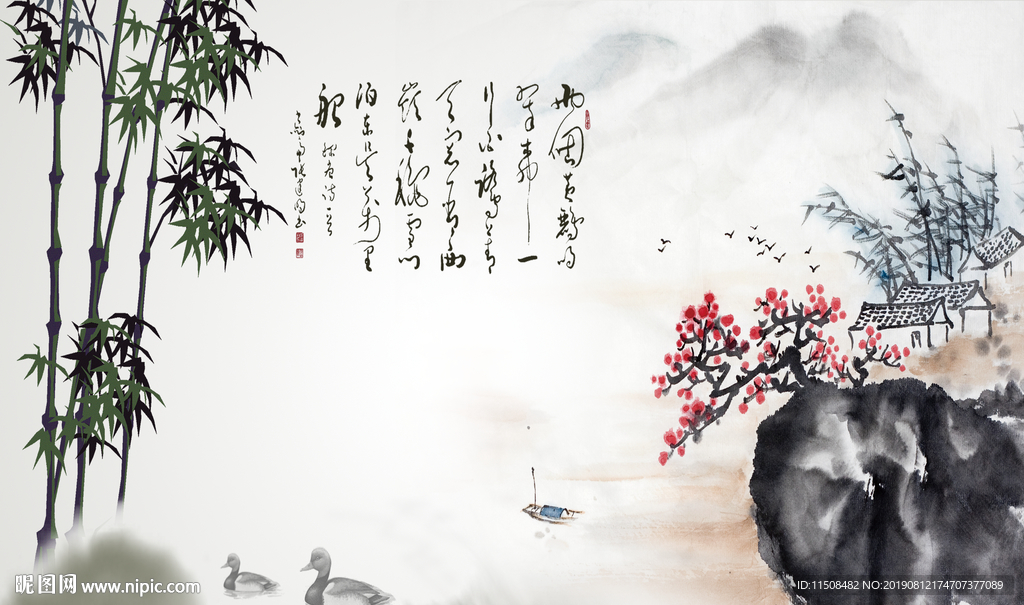 两個黄鹂鸣
翠柳一
行白鹭上青
天窗含西
岭千秋雪门
泊东吴万里
船 杜甫诗一首
昵图网 www.nipic.com
ID:11508482 NO:20190812174707377089